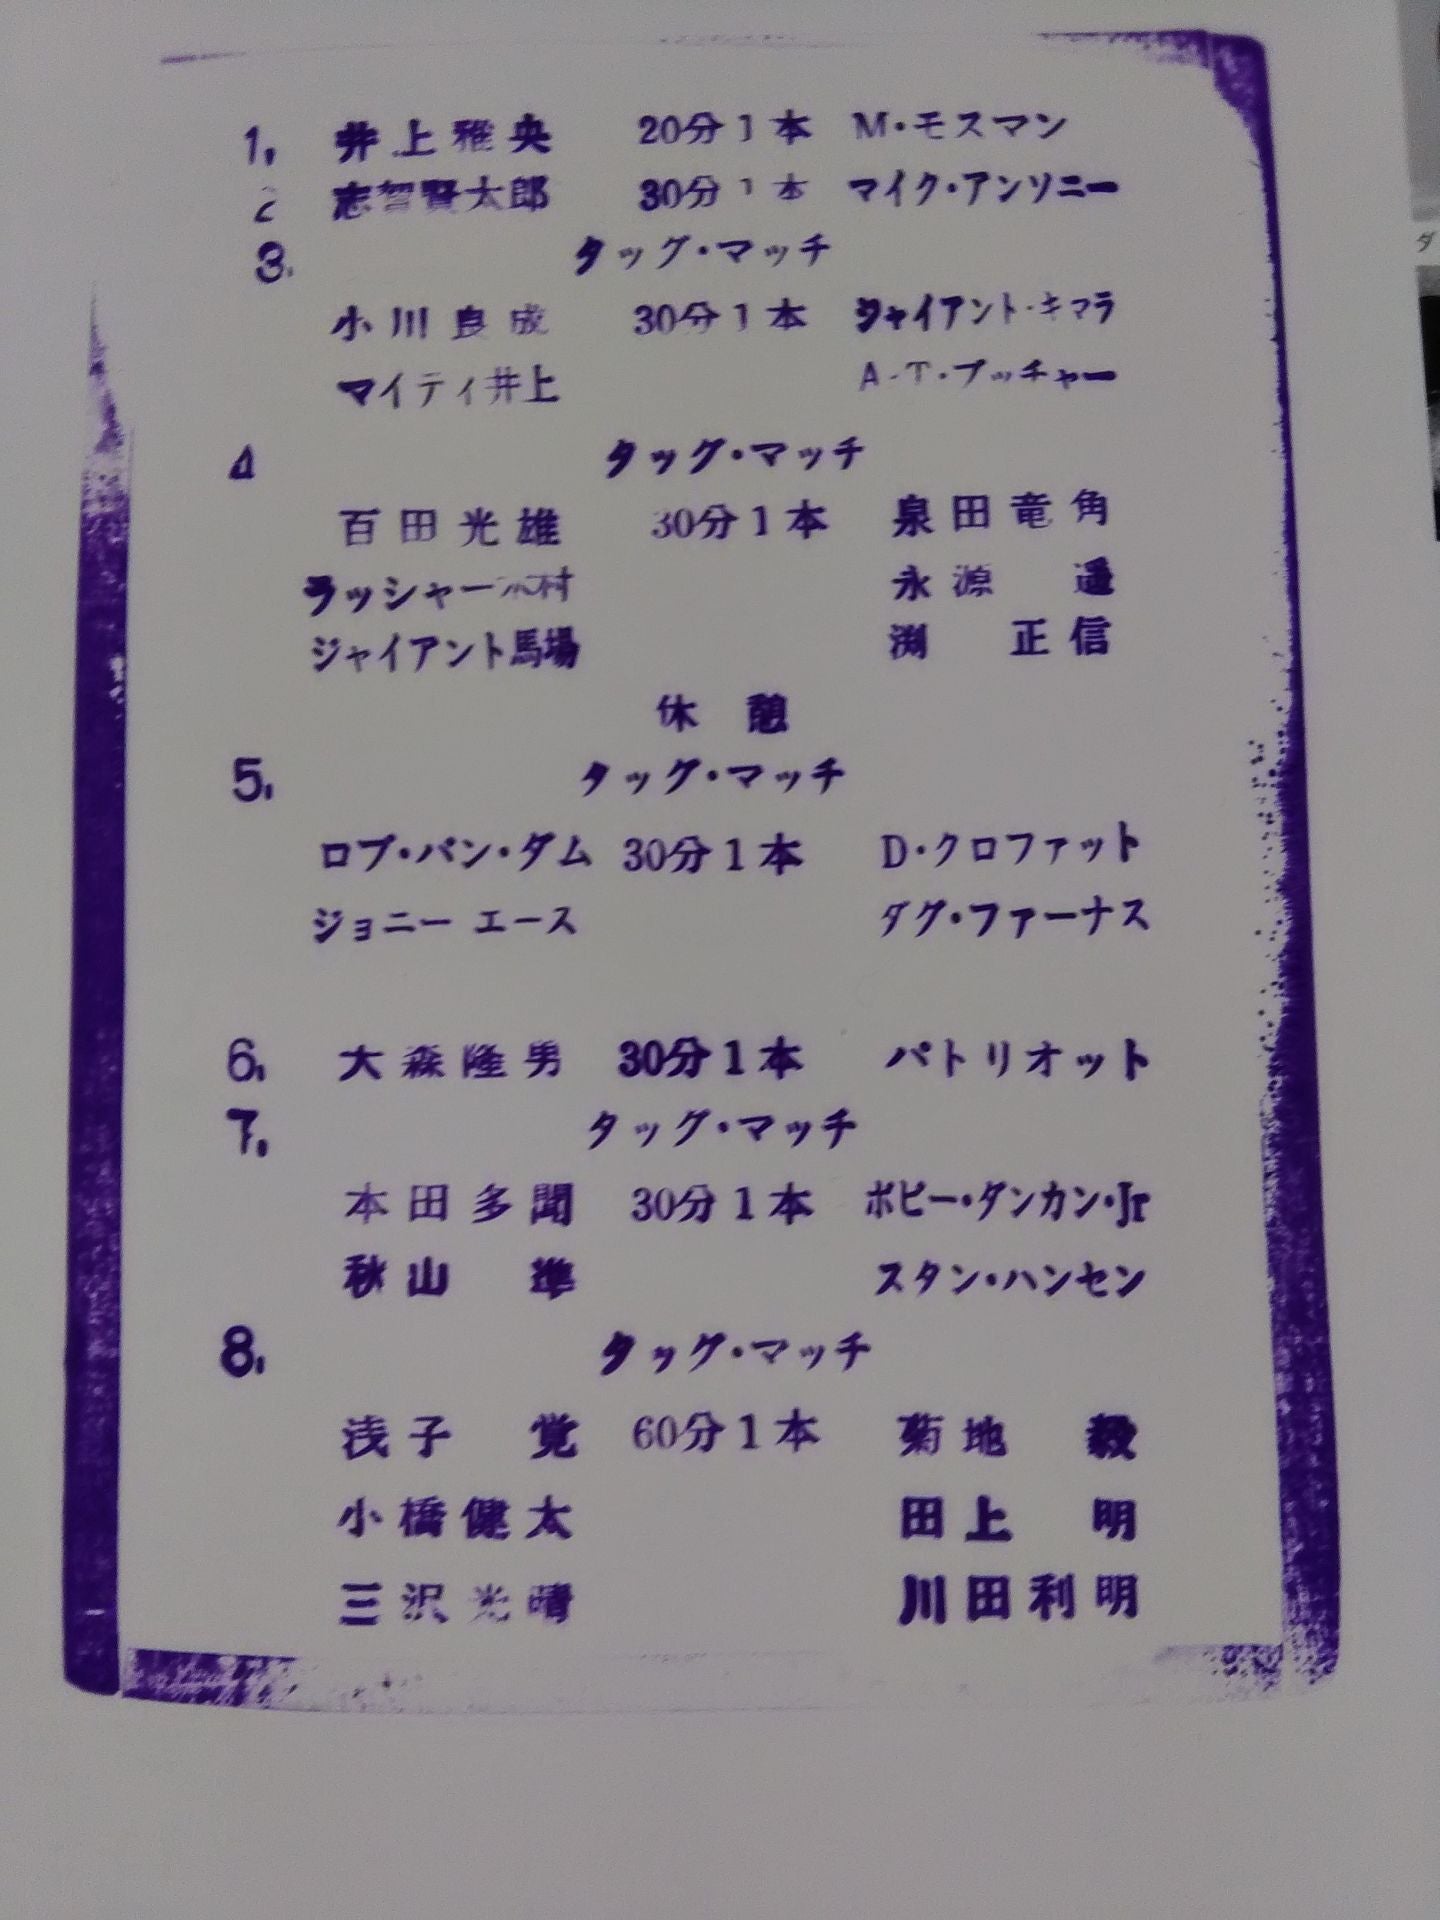 1. 井上雅央 20分1本 M・モスマン
2 志智賢太郎 30分1本 マイク・アンソニー
3. タッグ・マッチ
小川良成 30分1本 ジャイアント・キマラ
マイティ井上 A・T・ブッチャー
4 タッグ・マッチ
百田光雄 30分1本 泉田竜角
ラッシャー木村 永源 遥
ジャイアント馬場 渕 正信
休憩
5. タッグ・マッチ
ロブ・バン・ダム 30分1本 D・クロファット
ジョニー エース ダグ・ファーナス
6. 大森隆男 30分1本 パトリオット
7. タッグ・マッチ
本田多聞 30分1本 ボビー・ダンカン・Jr
秋山 準 スタン・ハンセン
8. タッグ・マッチ
浅子 覚 60分1本 菊地 毅
小橋健太 田上 明
三沢光晴 川田利明
ダ